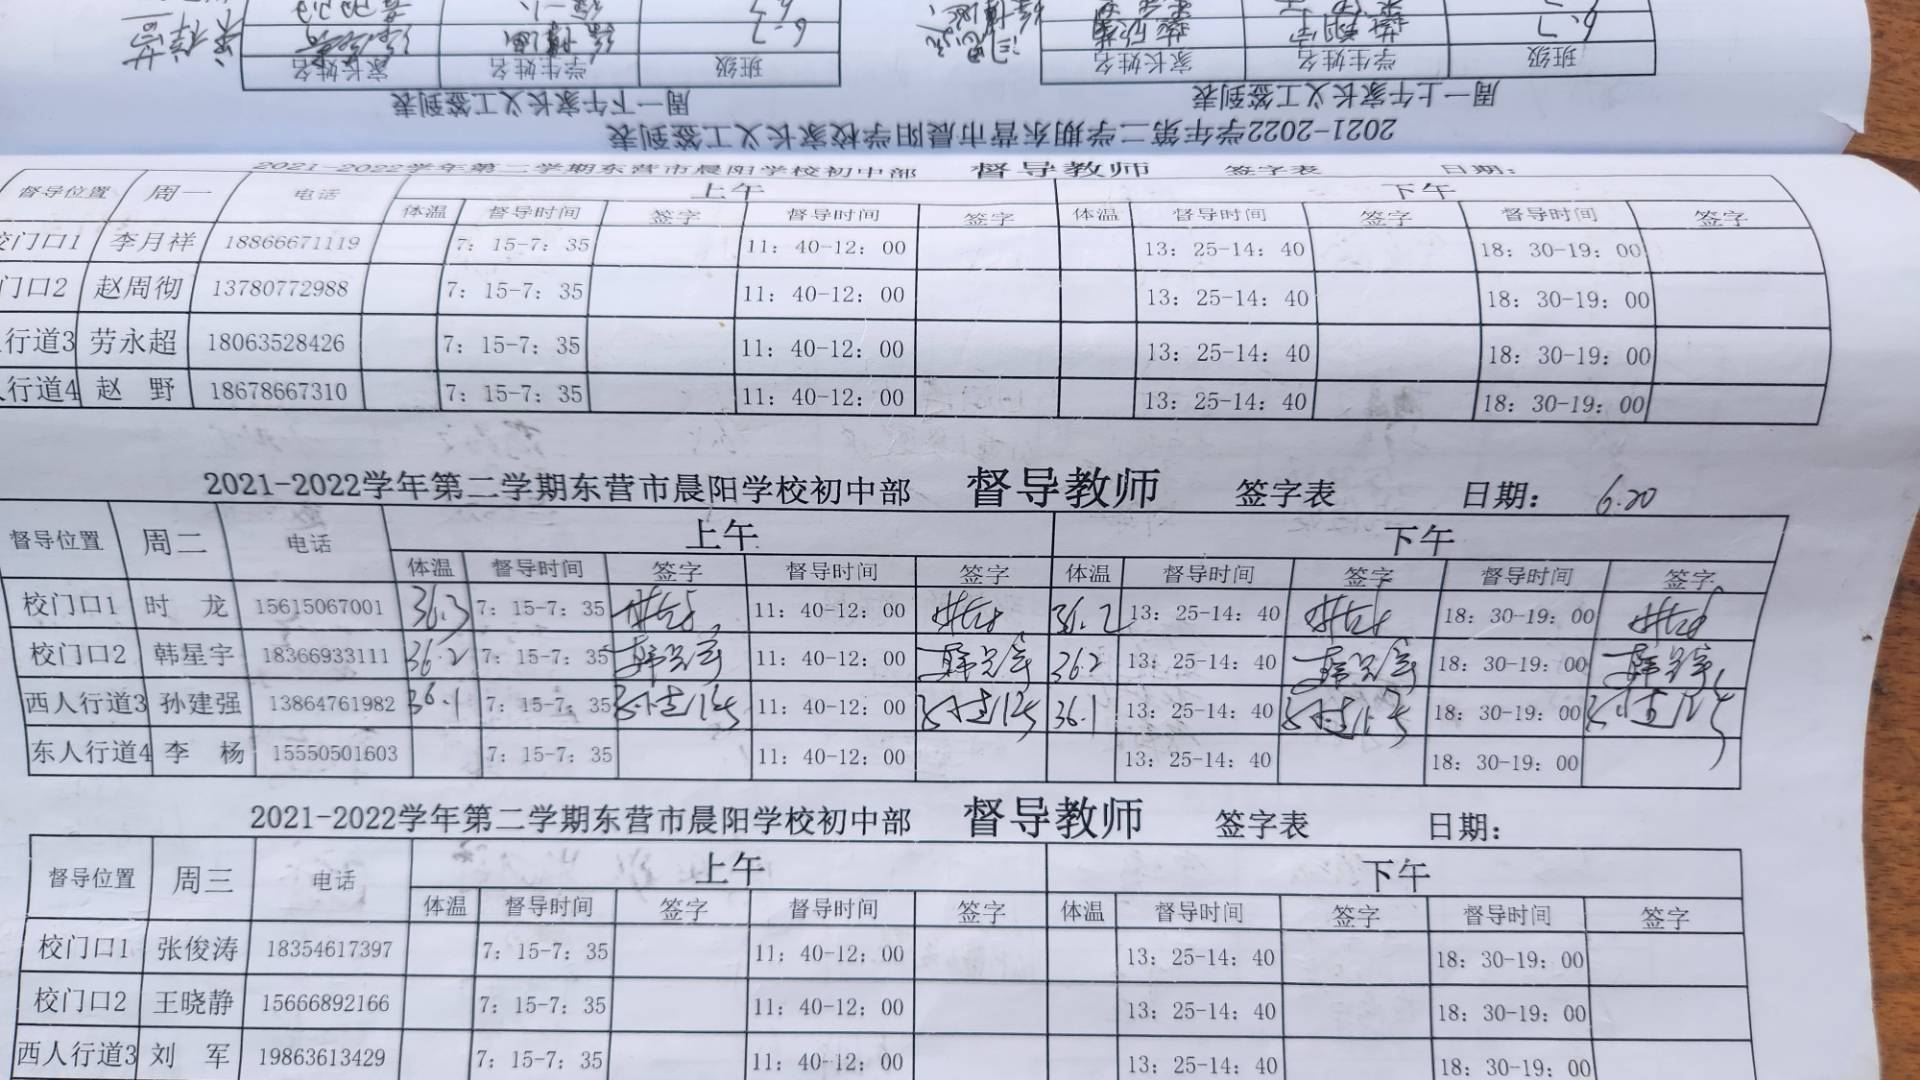 2021-2022学年第二学期东营市晨阳学校家长义工签到表
周一上午家长义工签到表
周一下午家长义工签到表
班级 学生姓名 家长姓名
班级 学生姓名 家长姓名
6.7
6.7
2021-2022学年第二学期东营市晨阳学校初中部 督导教师 签字表 日期：
督导位置 周一 电话 上午 下午
体温 督导时间 签字 督导时间 签字 体温 督导时间 签字 督导时间 签字
校门口1 李月祥 18866671119 7：15-7：35 11：40-12：00 13：25-14：40 18：30-19：00
门口2 赵周彻 13780772988 7：15-7：35 11：40-12：00 13：25-14：40 18：30-19：00
人行道3 劳永超 18063528426 7：15-7：35 11：40-12：00 13：25-14：40 18：30-19：00
人行道4 赵 野 18678667310 7：15-7：35 11：40-12：00 13：25-14：40 18：30-19：00
2021-2022学年第二学期东营市晨阳学校初中部 督导教师 签字表 日期： 6.20
督导位置 周二 电话 上午 下午
体温 督导时间 签字 督导时间 签字 体温 督导时间 签字 督导时间 签字
校门口1 时 龙 15615067001 36.3 7：15-7：35 11：40-12：00 36.2 13：25-14：40 18：30-19：00
校门口2 韩星宇 18366933111 36.2 7：15-7：35 韩星宇 11：40-12：00 韩星宇 36.2 13：25-14：40 韩星宇 18：30-19：00 韩星宇
西人行道3 孙建强 13864761982 36.1 7：15-7：35 孙建强 11：40-12：00 孙建强 36.1 13：25-14：40 孙建强 18：30-19：00 孙建强
东人行道4 李 杨 15550501603 7：15-7：35 11：40-12：00 13：25-14：40 18：30-19：00
2021-2022学年第二学期东营市晨阳学校初中部 督导教师 签字表 日期：
督导位置 周三 电话 上午 下午
体温 督导时间 签字 督导时间 签字 体温 督导时间 签字 督导时间 签字
校门口1 张俊涛 18354617397 7：15-7：35 11：40-12：00 13：25-14：40 18：30-19：00
校门口2 王晓静 15666892166 7：15-7：35 11：40-12：00 13：25-14：40 18：30-19：00
西人行道3 刘 军 19863613429 7：15-7：35 11：40-12：00 13：25-14：40 18：30-19：00